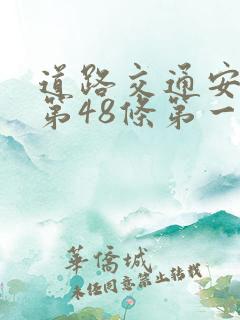 道路交通安
第48條第一
華僑城
未經同意禁止轉載